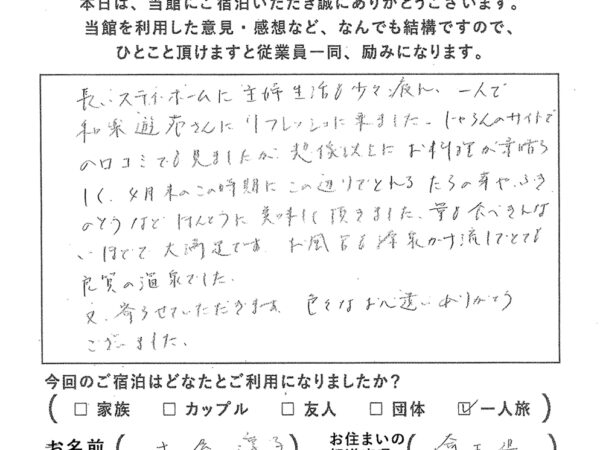 本日は、当館にご宿泊いただき誠にありがとうございます。
当館を利用した意見・感想など、なんでも結構ですので、
ひとこと頂けますと従業員一同、励みになります。
長いステイホームに主婦生活も少々疲れ、一人で
和泉遊庵さんにリフレッシュに来ました。じゃらんのサイトで
の口コミでも見ましたが、想像以上にお料理が素晴ら
しく、4月末のこの時期にこの辺りでとれるたらの芽や、ふき
のとうなどほんとうに美味しく頂きました。量も食べきれな
いほどで大満足です。お風呂も源泉かけ流しでとても
良質の温泉でした。
又、寄らせていただきます。色々なお心遣いありがとう
ございました。
今回のご宿泊はどなたとご利用になりましたか?
( □ 家族 □ カップル □ 友人 □ 団体 ☑ 一人旅 )
お名前 ( お住まいの (